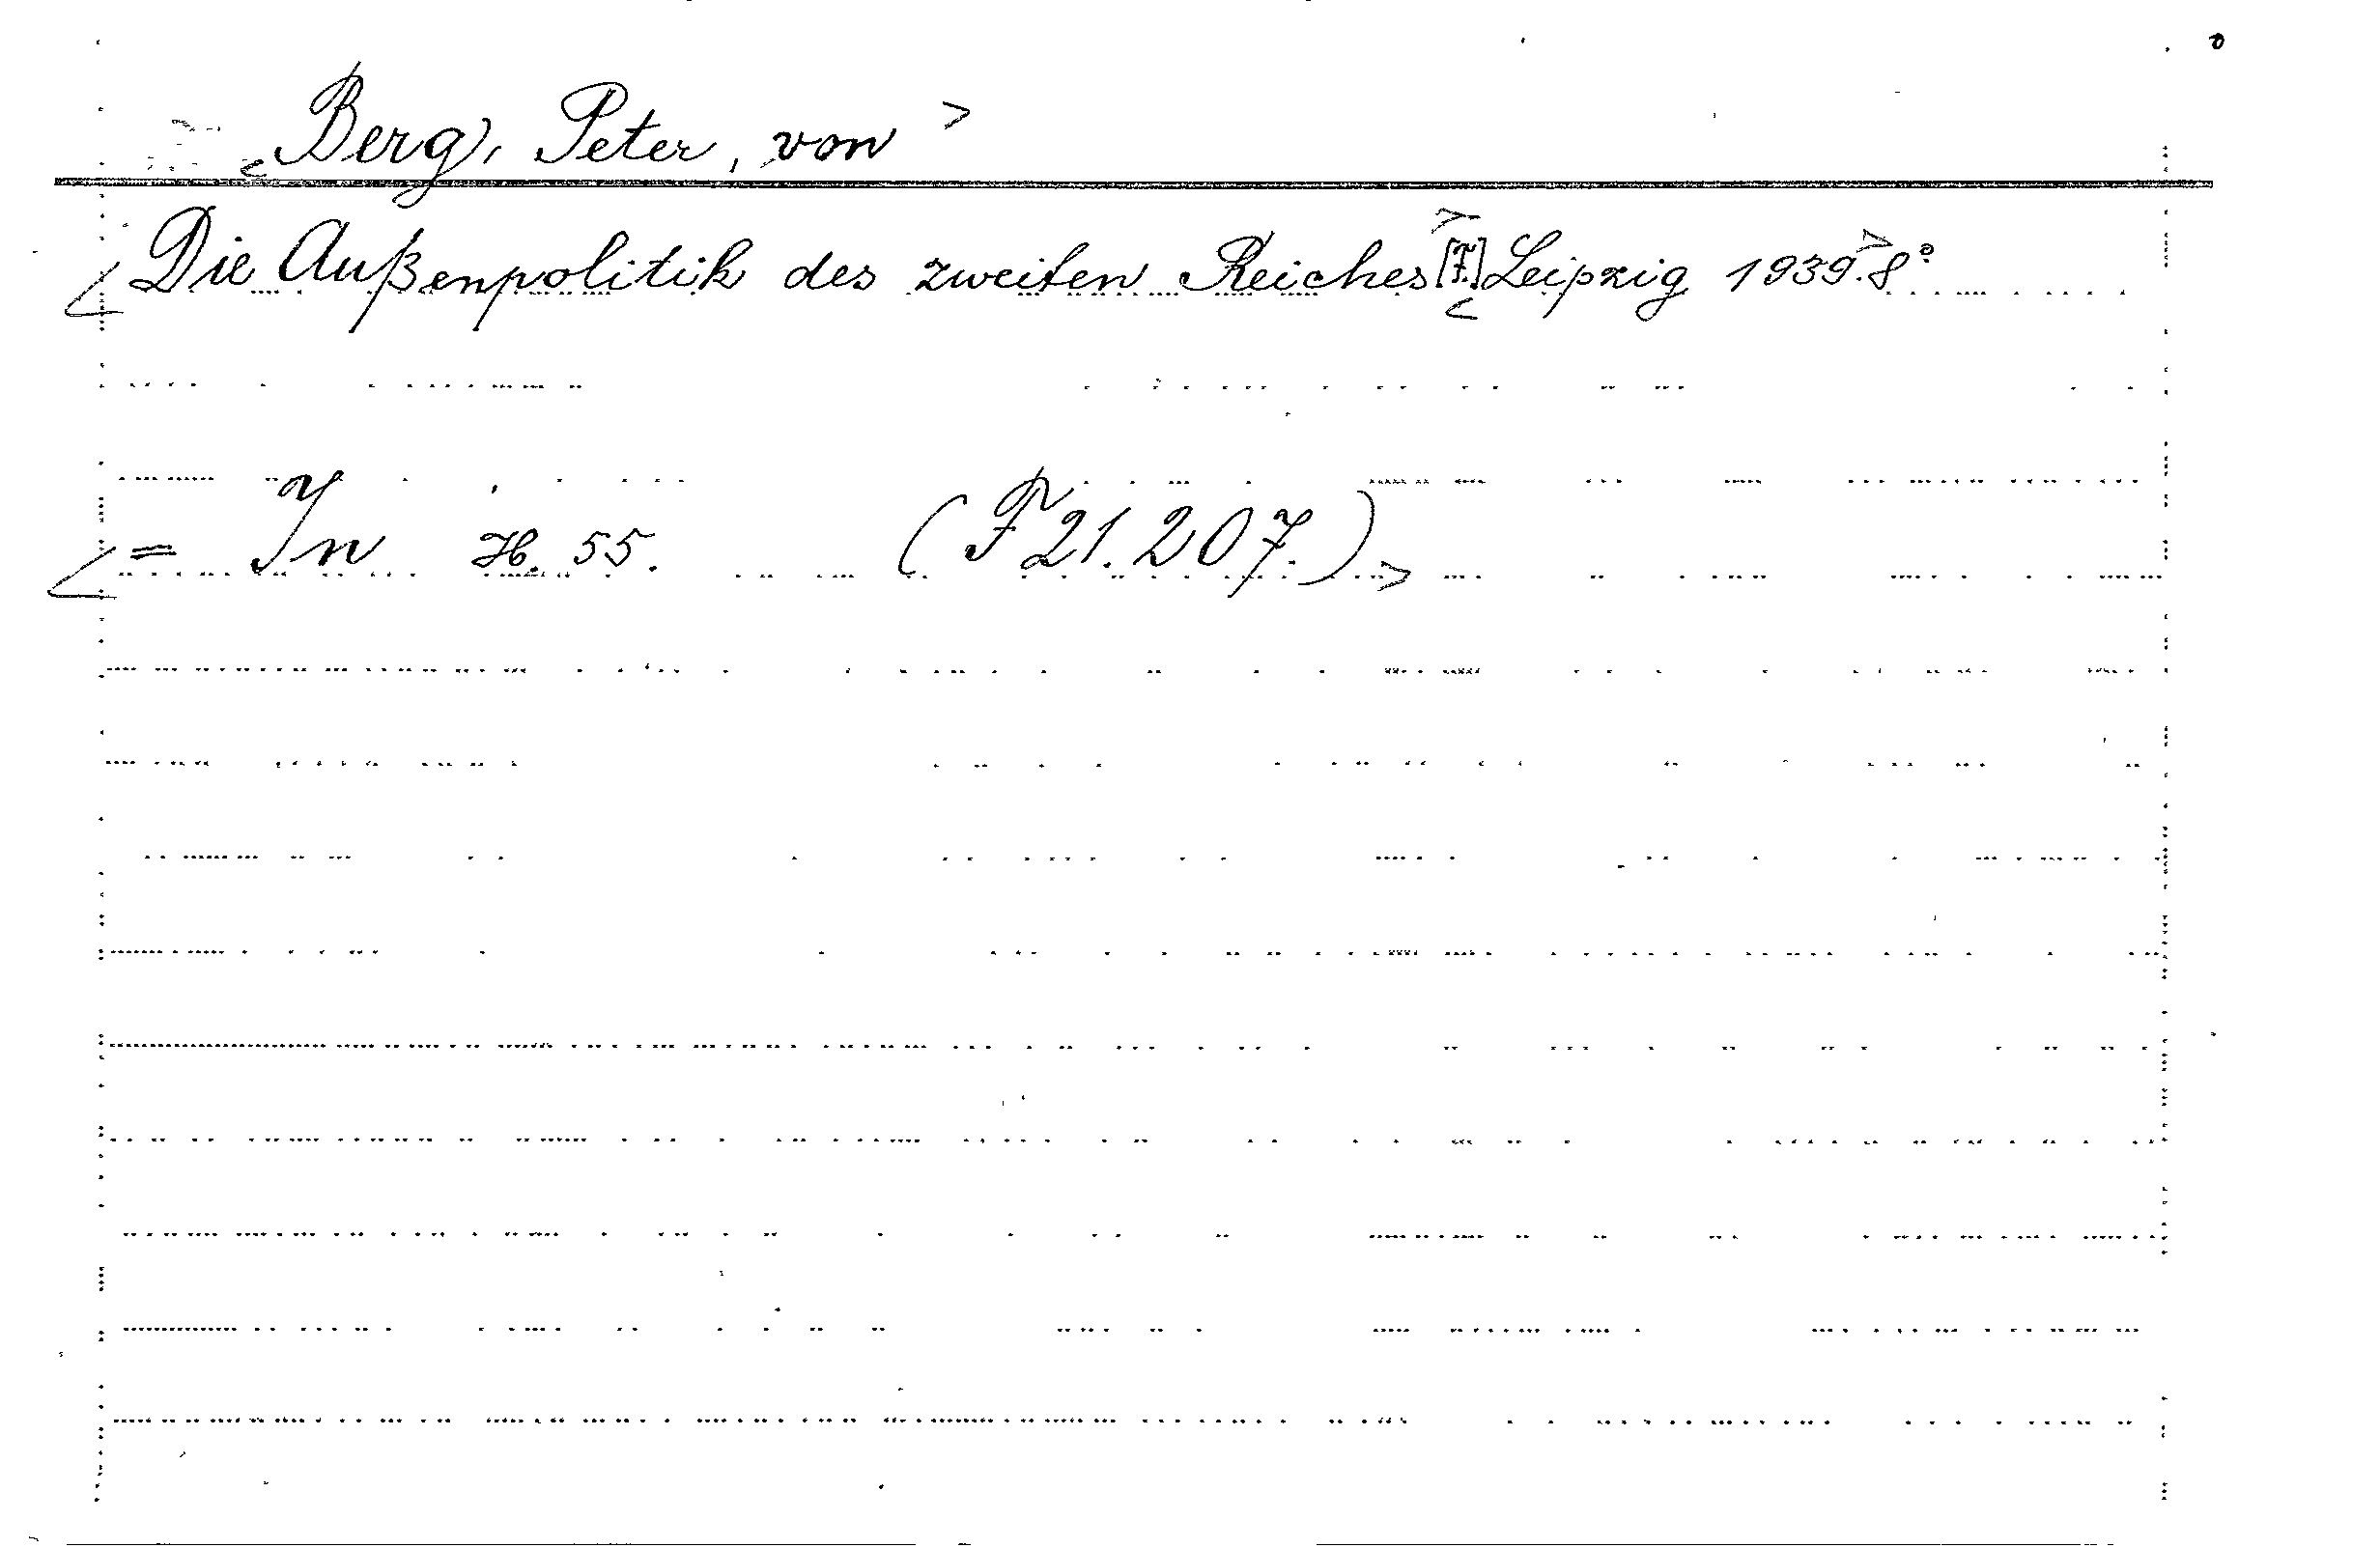 <Berg, Peter, von>
<Die Außenpolitik des zweiten Reiches> <Leipzig 1939.> 8°
<= In H. 55. (F 21.207.)>